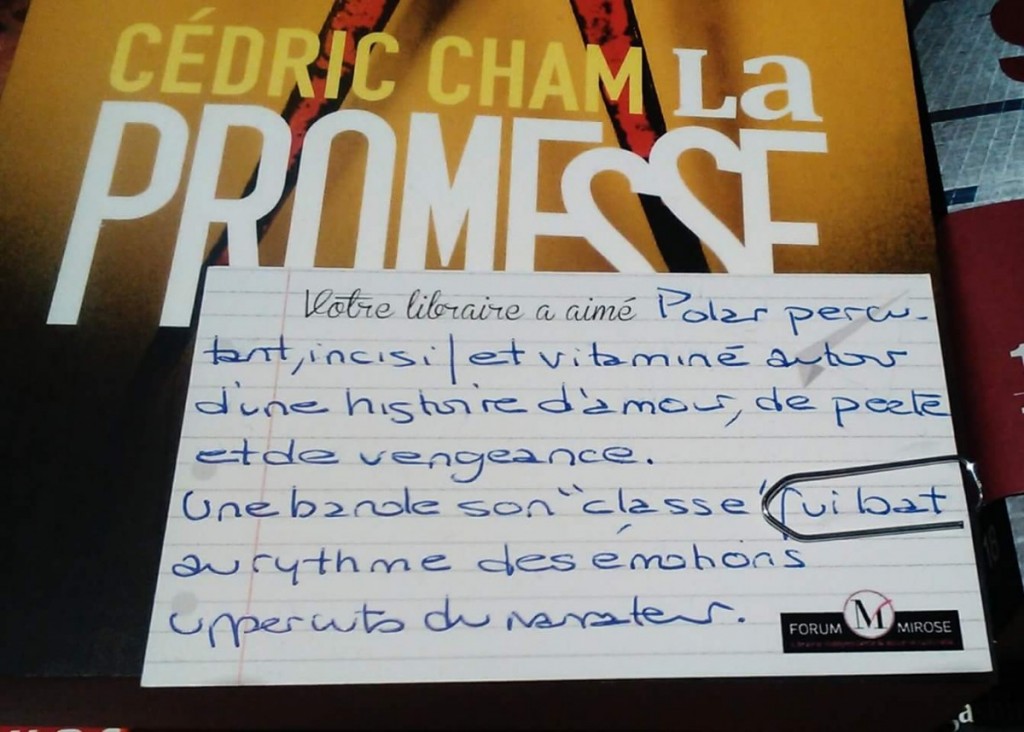 CÉDRIC CHAM La
PROMESSE
Votre libraire a aimé Polar percu-
tant, incisif et vitaminé autour
d'une histoire d'amour, de
et de vengeance.
Une bande son "classe" qui bat
au rythme des émotions
uppercuts du narrateur.
FORUM M MIROSE